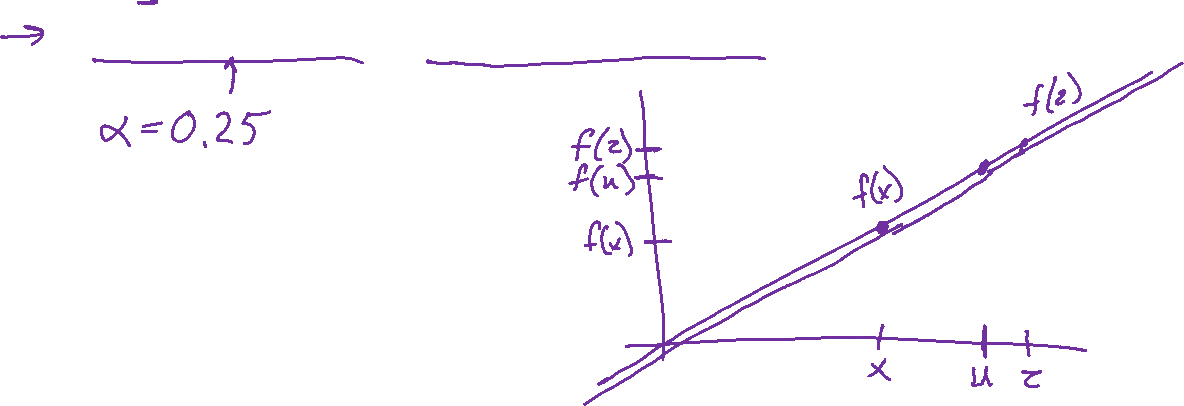 →
α = 0.25
f(z)
f(z)
f(u)
f(x)
f(x)
x u z